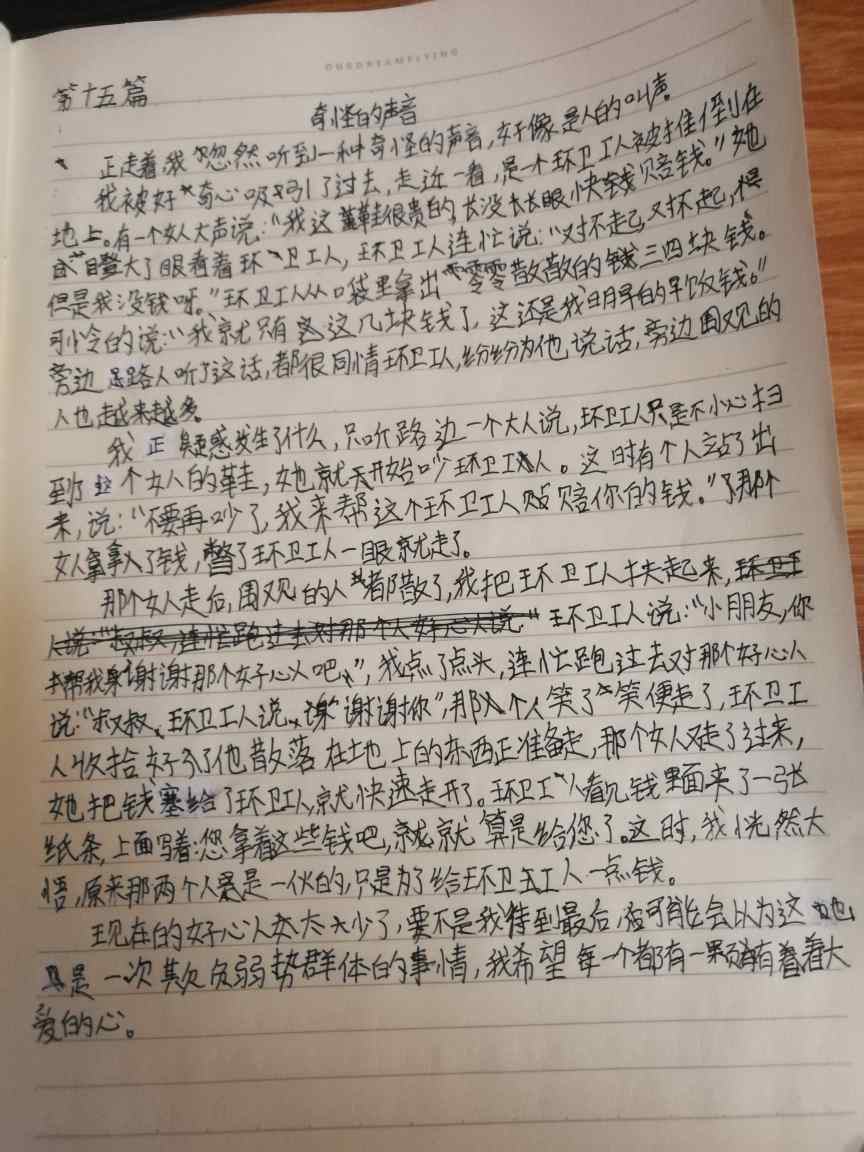 OUHDREAMFLYING
第十五篇
奇怪的声音
正走着,我忽然听到一种奇怪的声音,好像是人的叫声。
我被好奇心吸引了过去,走近一看,是一个环卫工人被推倒在
地上。有一个女人大声说:“我这鞋很贵的,长没长眼,快赔钱。”她
瞪大了眼看着环卫工人,环卫工人连忙说:“对不起,对不起,
但是我没钱呀。”环卫工人从口袋里拿出零零散散的钱三四块钱。
可怜的说:“我就只有这几块钱了,这还是我明早的早饭钱。”
旁边路人听了这话,都很同情环卫工人,纷纷为他说话,旁边围观的
人也越来越多。
我正疑惑发生了什么,只听路边一个大人说,环卫工人只是不小心扫
到了这个女人的鞋,她就开始吵环卫工人。这时有个人站了出
来,说:“不要再吵了,我来帮这个环卫工人赔你的钱。”了那个
女人拿入了钱,瞥了环卫工人一眼就走了。
那个女人走后,围观的人都散了,我把环卫工人扶起来,环卫工
人说:“叔叔,连忙跑过去对那个人好心人说:“环卫工人说:“小朋友,你
帮我谢谢那个好心人吧”,我点了点头,连忙跑过去对那个好心人
说:“叔叔,环卫工人说,谢谢你”,那个人笑了笑便走了,环卫工
人收拾好了他散落在地上的东西正准备走,那个女人又走了过来,
她把钱塞给了环卫工人,就快速走开了。环卫工人看见钱里面夹了一张
纸条,上面写着:您拿着这些钱吧,就就算是给您了。这时,我恍然大
悟,原来那两个人是一伙的,只是为了给环卫工人一点钱。
现在的好心人太少了,要不是我待到最后,可能会以为这
是一次欺负弱势群体的事情,我希望每一个都有一颗有着大
爱的心。